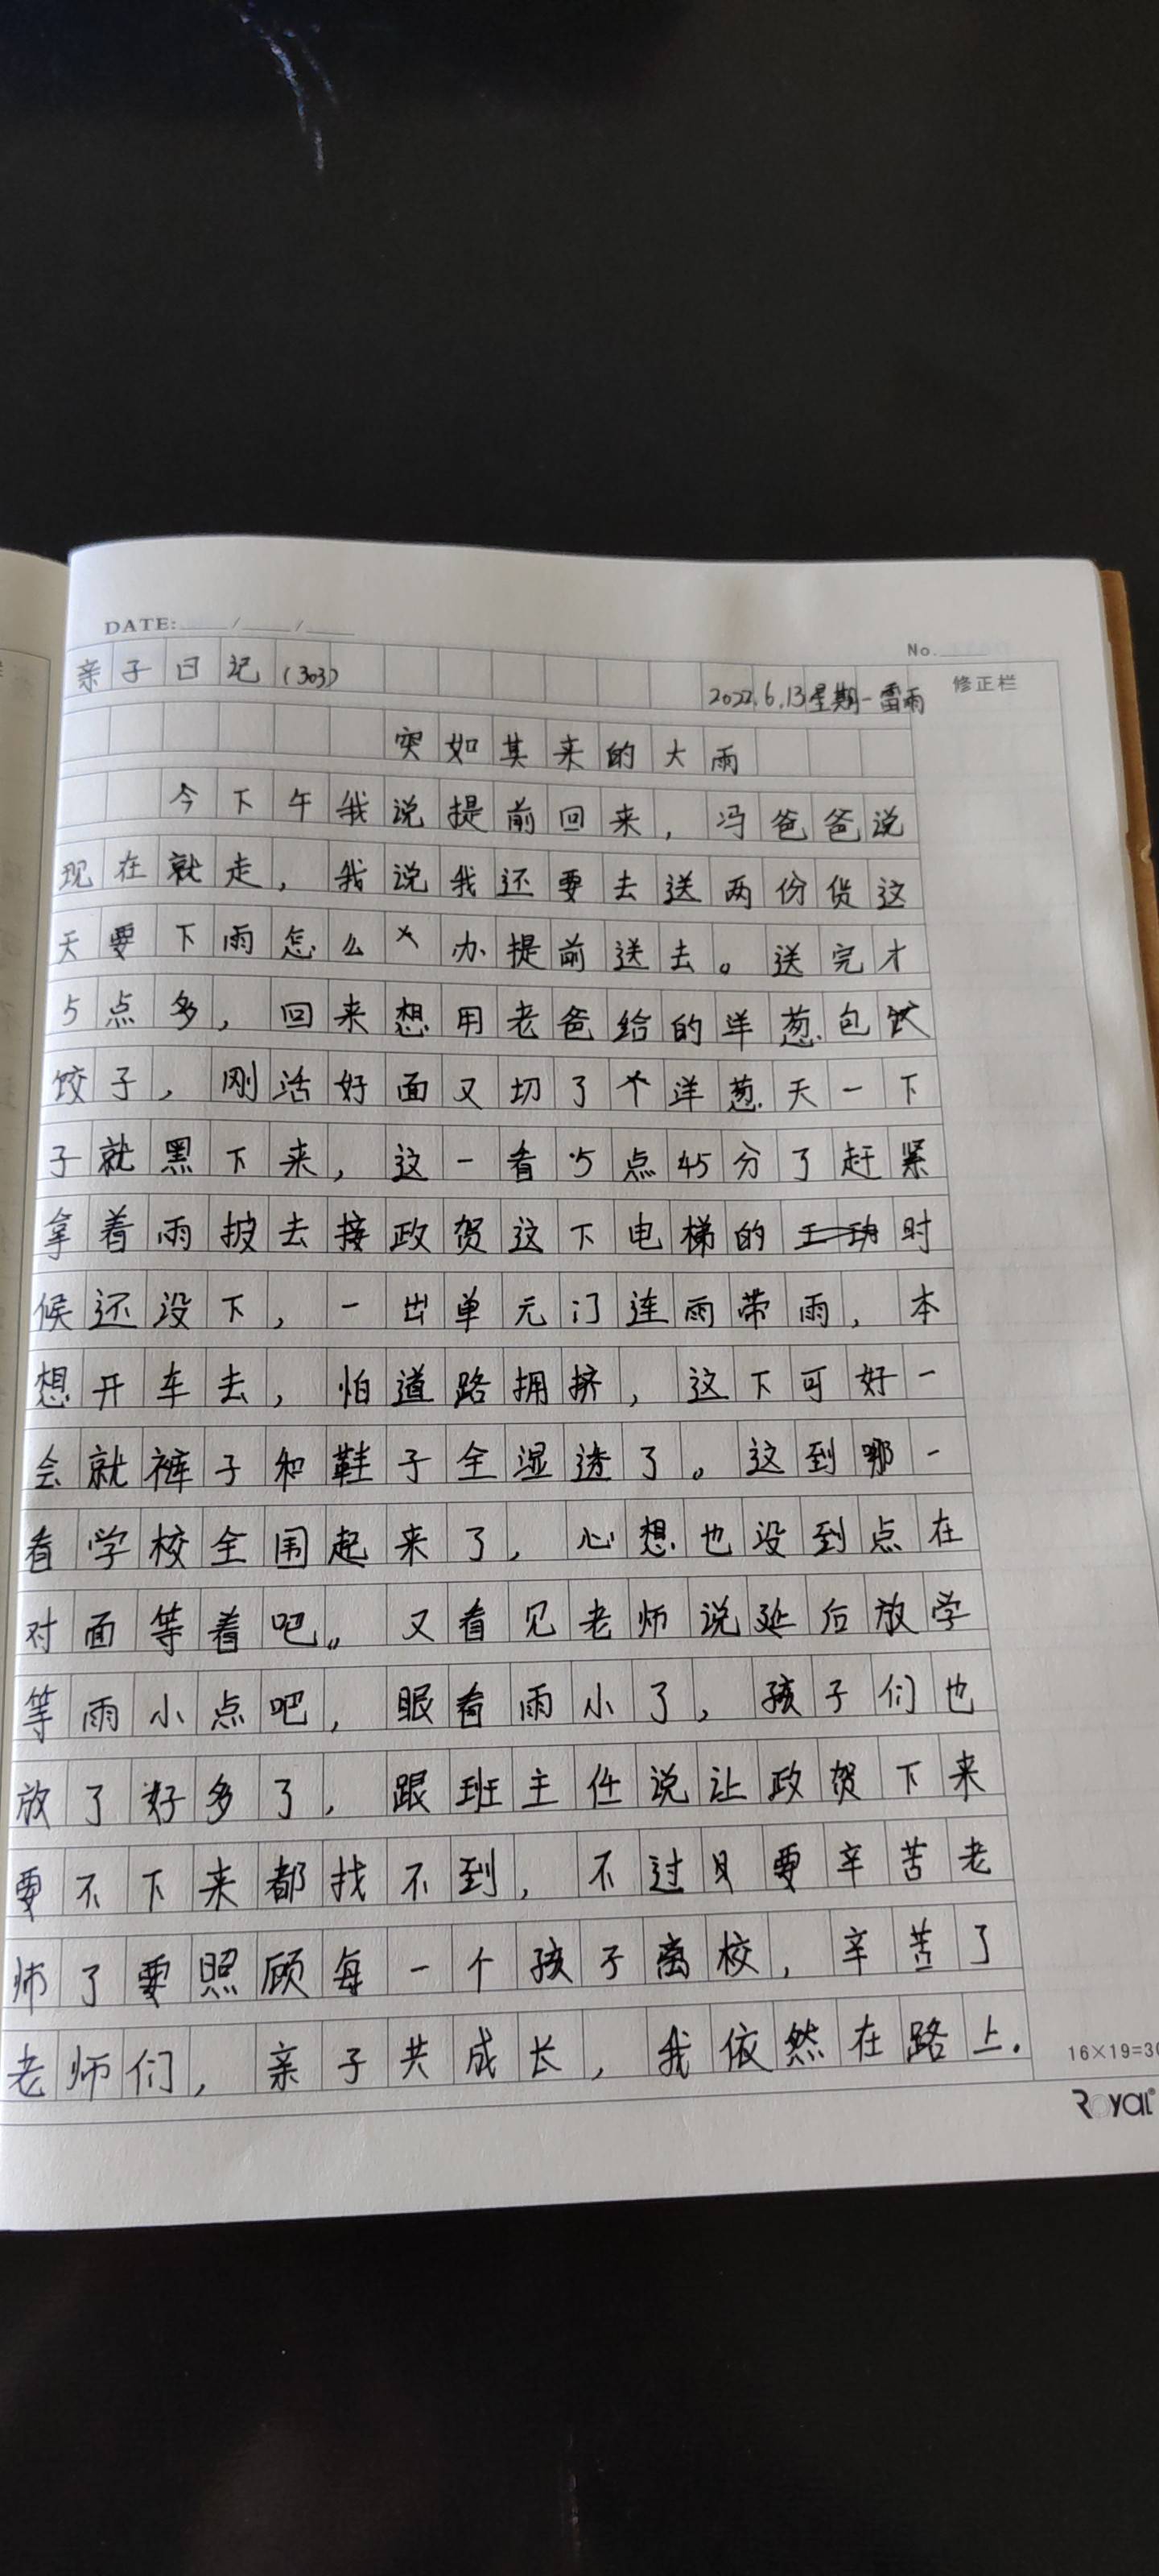 DATE: / /
No.
亲子日记(303)
修正栏
2022.6.13星期一雷雨
突如其来的大雨
今下午我说提前回来，冯爸爸说
现在就走，我说我还要去送两份货这
天要下雨怎么办提前送去。送完才
5点多，回来想用老爸给的洋葱包
饺子，刚活好面又切了个洋葱天一下
子就黑下来，这一看5点45分了赶紧
拿着雨披去接政贺这下电梯的时
候还没下，一出单元门连雨带雨，本
想开车去，怕道路拥挤，这下可好一
会就裤子和鞋子全湿透了。这到哪一
看学校全围起来了，心想也没到点在
对面等着吧。又看见老师说延后放学
等雨小点吧，眼看雨小了，孩子们也
放了好多了，跟班主任说让政贺下来
要不下来都找不到，不过只要辛苦老
师了要照顾每一个孩子离校，辛苦了
老师们，亲子共成长，我依然在路上.
16×19=30
Royal